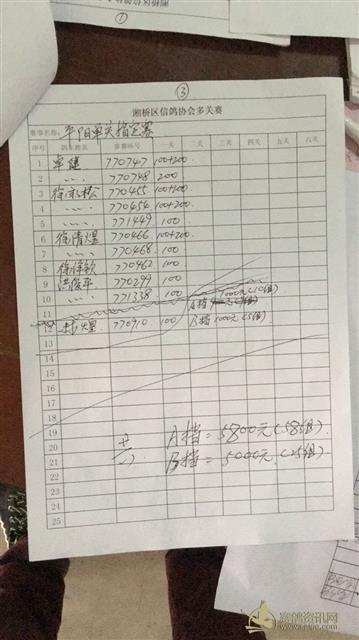 ③
湘桥区信鸽协会多关赛
赛事名称: 平阳单关指定赛
序号 鸽主姓名 赛鸽环号 一关 二关 三关 四关 五关 六关
1 卓健 770747 100+200
2 〃 770748 200
3 770455 100+100
4 〃 770454 100+200
5 〃 771449 100
6 徐清煌 770466 100+200
7 〃 770468 100
8 770462 100
9 洪俊平 770299 100
10 〃 771338 100
11 A档
12 770910 100 B档 1000元(5组)
13
14
15
16
17
18
19
20 A档=5800元(58组)
21 B档=5000元(25组)
22
23
24
25
赛鸽资讯网